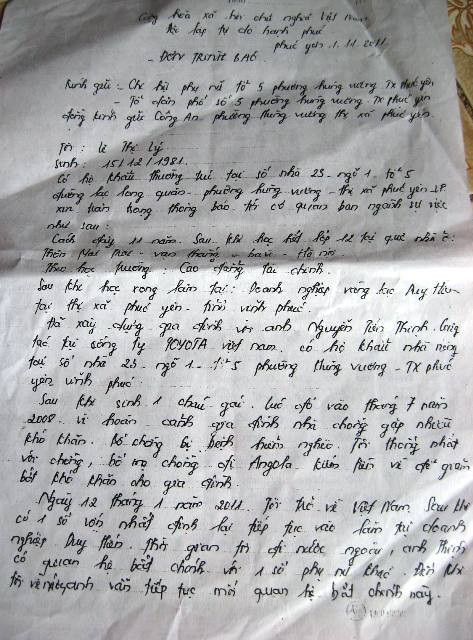 Cộng hòa xã hội chủ nghĩa Việt Nam
Độc lập tự do hạnh phúc
phúc yên. 1. 11. 2011
- ĐƠN TRÌNH BÁO.
Kính gửi: - Chi hội phụ nữ tổ 5 phường hùng vương TX phúc yên
- Tổ dân phố số 5 phường hùng vương. TX phúc yên
đồng kính gửi Công An phường Hùng vương thị xã phúc yên.
Tôi: Lê Thị Lý
Sinh: 15/12/1981.
Có hộ khẩu thường trú tại số nhà 23 - ngõ 1 - tổ 5
đường lạc long quân - phường hùng vương - thị xã phúc yên - VP.
xin trân trọng thông báo tới cơ quan ban ngành sự việc
như sau:
Cách đây 11 năm. Sau khi học hết lớp 12 tại quê nhà ở:
thôn - vạn thắng - ba vì - Hà nội.
Theo học trường: Cao đẳng tài chính.
Sau khi học xong làm tại: Doanh nghiệp vàng bạc Duy Hiển
tại thị xã phúc yên - tỉnh vĩnh phúc.
Đã xây dựng gia đình với anh Nguyễn Tiến Thịnh. Công
tác tại công ty TOYOTA việt nam. có hộ khẩu nhà riêng
tại số nhà 23 - ngõ 1 - tổ 5 phường Hùng vương - TX phúc
yên vĩnh phúc.
Sau khi sinh 1 cháu gái. lúc đó vào tháng 7 năm
2008. vì hoàn cảnh gia đình nhà chồng gặp nhiều
khó khăn. Bố chồng bị bệnh hiểm nghèo. Tôi thống nhất
với chồng, bố mẹ chồng đi Angola kiếm tiền về để giảm
bớt khó khăn cho gia đình.
Ngày 12 tháng 1 năm 2011. Tôi trở về Việt Nam. Sau khi
có 1 số vốn nhất định lại tiếp tục vào làm tại doanh
nghiệp Duy Hiển. Thời gian tôi đi nước ngoài, anh Thịnh
có quan hệ bất chính với 1 số phụ nữ khác. Đến khi
tôi về nước anh vẫn tiếp tục mối quan hệ bất chính này.